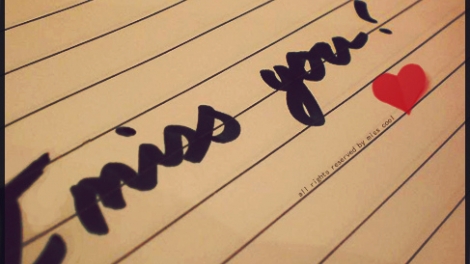 I miss you!
all rights reserved by miss cool